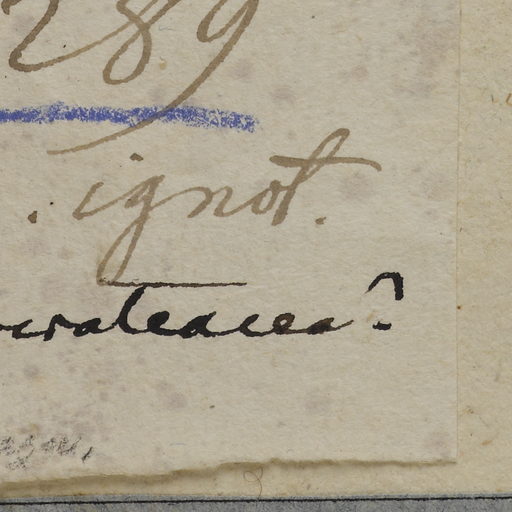 289
. ignot.
crateacea?